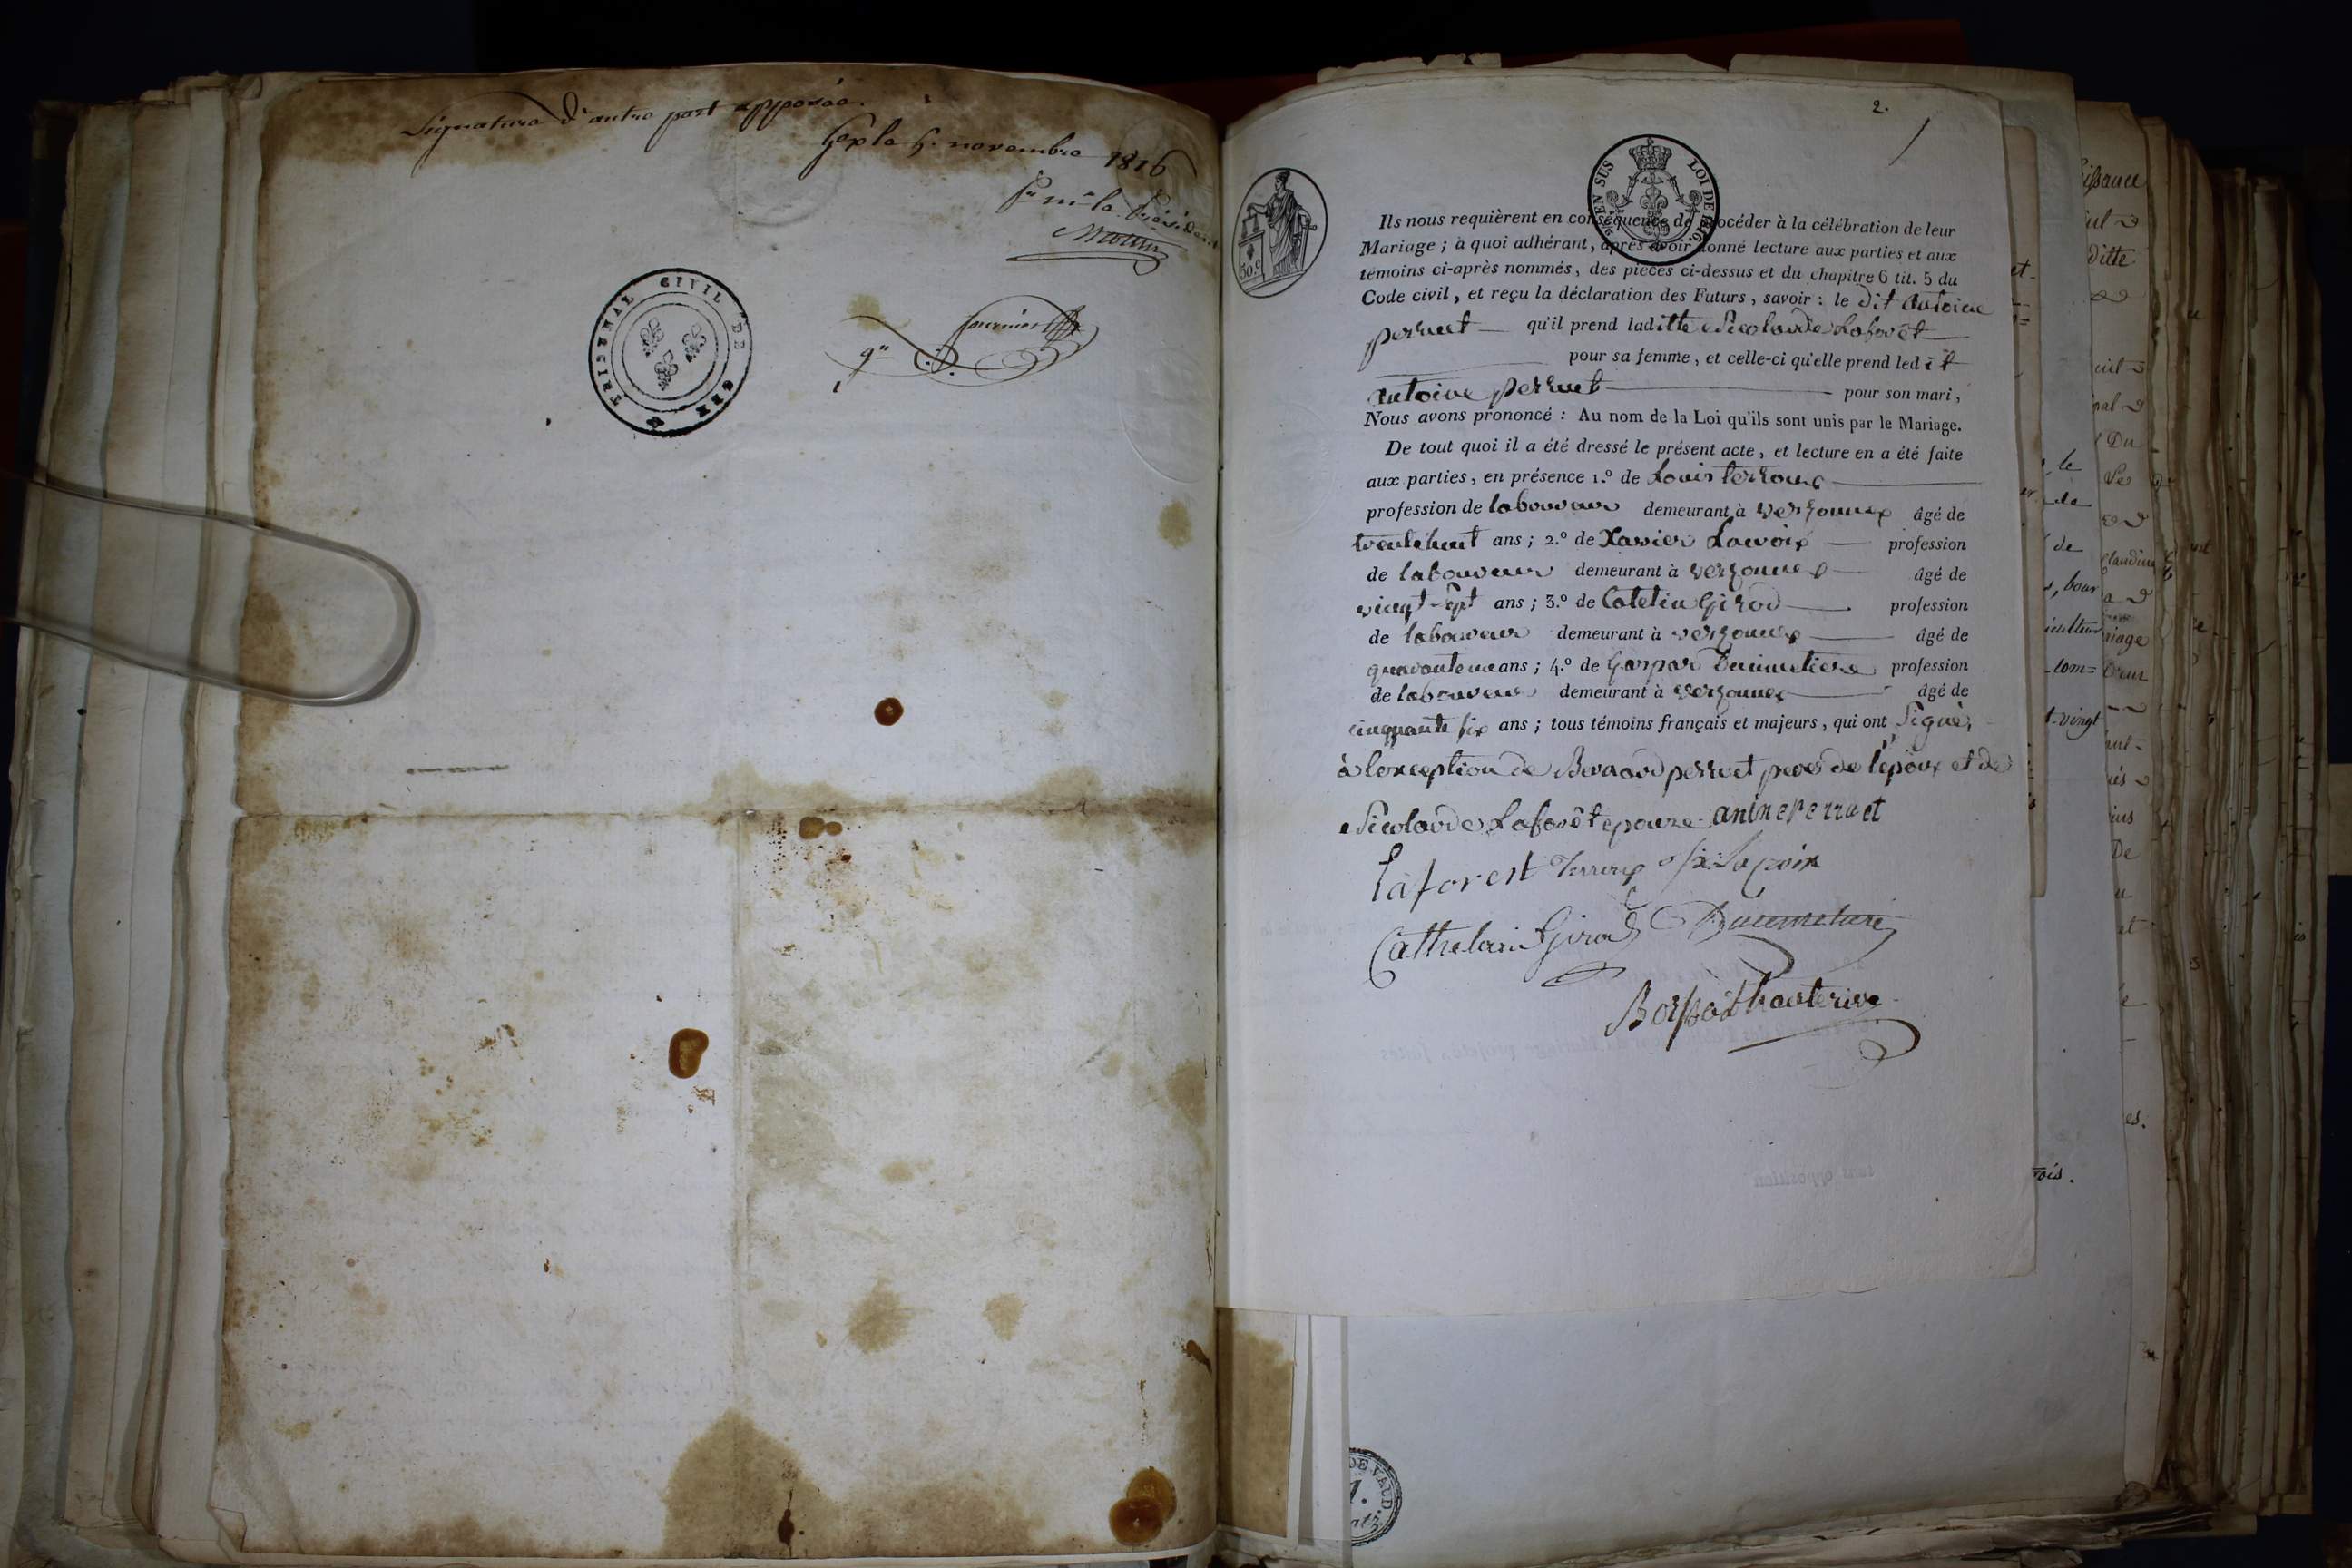 Signature d'autre part apposée.
Gex le 5. novembre 1816
Pr Mr le Président
TRIBUNAL CIVIL DE GEX
fournier
2.
EN SUS LOI DE 1816.
30.c
Ils nous requièrent en conséquence de procéder à la célébration de leur
Mariage ; à quoi adhérant, après avoir donné lecture aux parties et aux
témoins ci-après nommés, des pièces ci-dessus et du chapitre 6 tit. 5 du
Code civil, et reçu la déclaration des Futurs, savoir : le dit antoine
perruet qu'il prend laditte Nicolarde Laforêt
pour sa femme, et celle-ci qu'elle prend ledit
antoine perruet pour son mari,
Nous avons prononcé : Au nom de la Loi qu'ils sont unis par le Mariage.
De tout quoi il a été dressé le présent acte, et lecture en a été faite
aux parties, en présence 1.º de Louis terroux
profession de laboureur demeurant à versonnex âgé de
trentehuit ans ; 2.º de Xavier Lacroix profession
de laboureur demeurant à versonnex âgé de
vingt-sept ans ; 3.º de Catelin Girod profession
de laboureur demeurant à versonnex âgé de
quaranteun ans ; 4.º de Gaspar Ducimetiere profession
de laboureur demeurant à versonnex âgé de
cinquante six ans ; tous témoins français et majeurs, qui ont Signé,
à lexception de Bernard perruet pere de l'époux et de
Nicolarde Laforêt epouze antne Perruet
laforest Terroux fx Lacroix
Cathelain Girod Ducimetiere
Hauterive
DE VAUD
rois.
es.